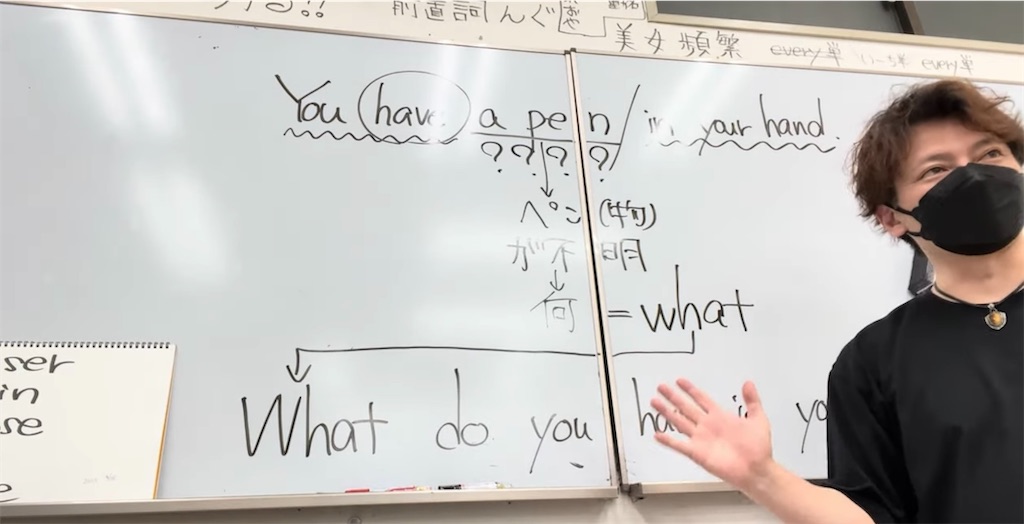 !!
前置詞 んぐ おや
美女 頻繁 every単 いーち単 every単
You have a pen / in your hand.
? ? ? ?
ペン (物)
が不明
何 = what
What do you ha
ser
in
se
e